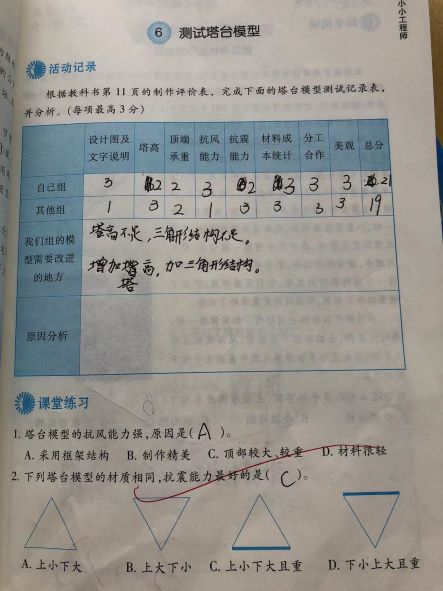 小小工程师
6 测试塔台模型
活动记录
根据教科书第 11 页的制作评价表，完成下面的塔台模型测试记录表，
并分析。（每项最高 3 分）
设计图及文字说明 塔高 顶端承重 抗风能力 抗震能力 材料成本统计 分工合作 美观 总分
自己组 3 2 2 3 2 3 3 3 21
其他组 1 3 2 1 3 3 3 3 19
我们组的模型需要改进的地方
塔高不足，三角形结构不足。
增加塔高，加三角形结构。
塔
原因分析
课堂练习
1. 塔台模型的抗风能力强，原因是（ A ）。
A. 采用框架结构 B. 制作精美 C. 顶部较大、较重 D. 材料很轻
2. 下列塔台模型的材质相同，抗震能力最好的是（ C ）。
A. 上小下大 B. 上大下小 C. 上小下大且重 D. 下小上大且重